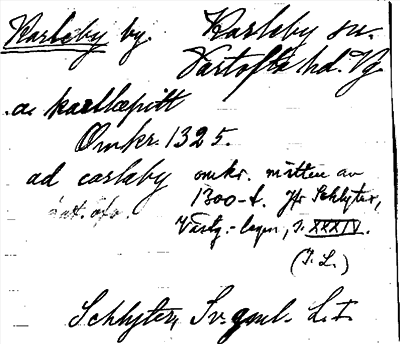 Karleby by. Karleby sn.
Vartofta hd. Vg.
a karllæpitt
Omkr. 1325.
ad carlæby omkr. mitten av
lat. öfv. 1300-t. Jfr Schlyter,
Västg.-lagen, s. XXXIV.
(I. L.)
Schlyter, Sv. gml. L. I.